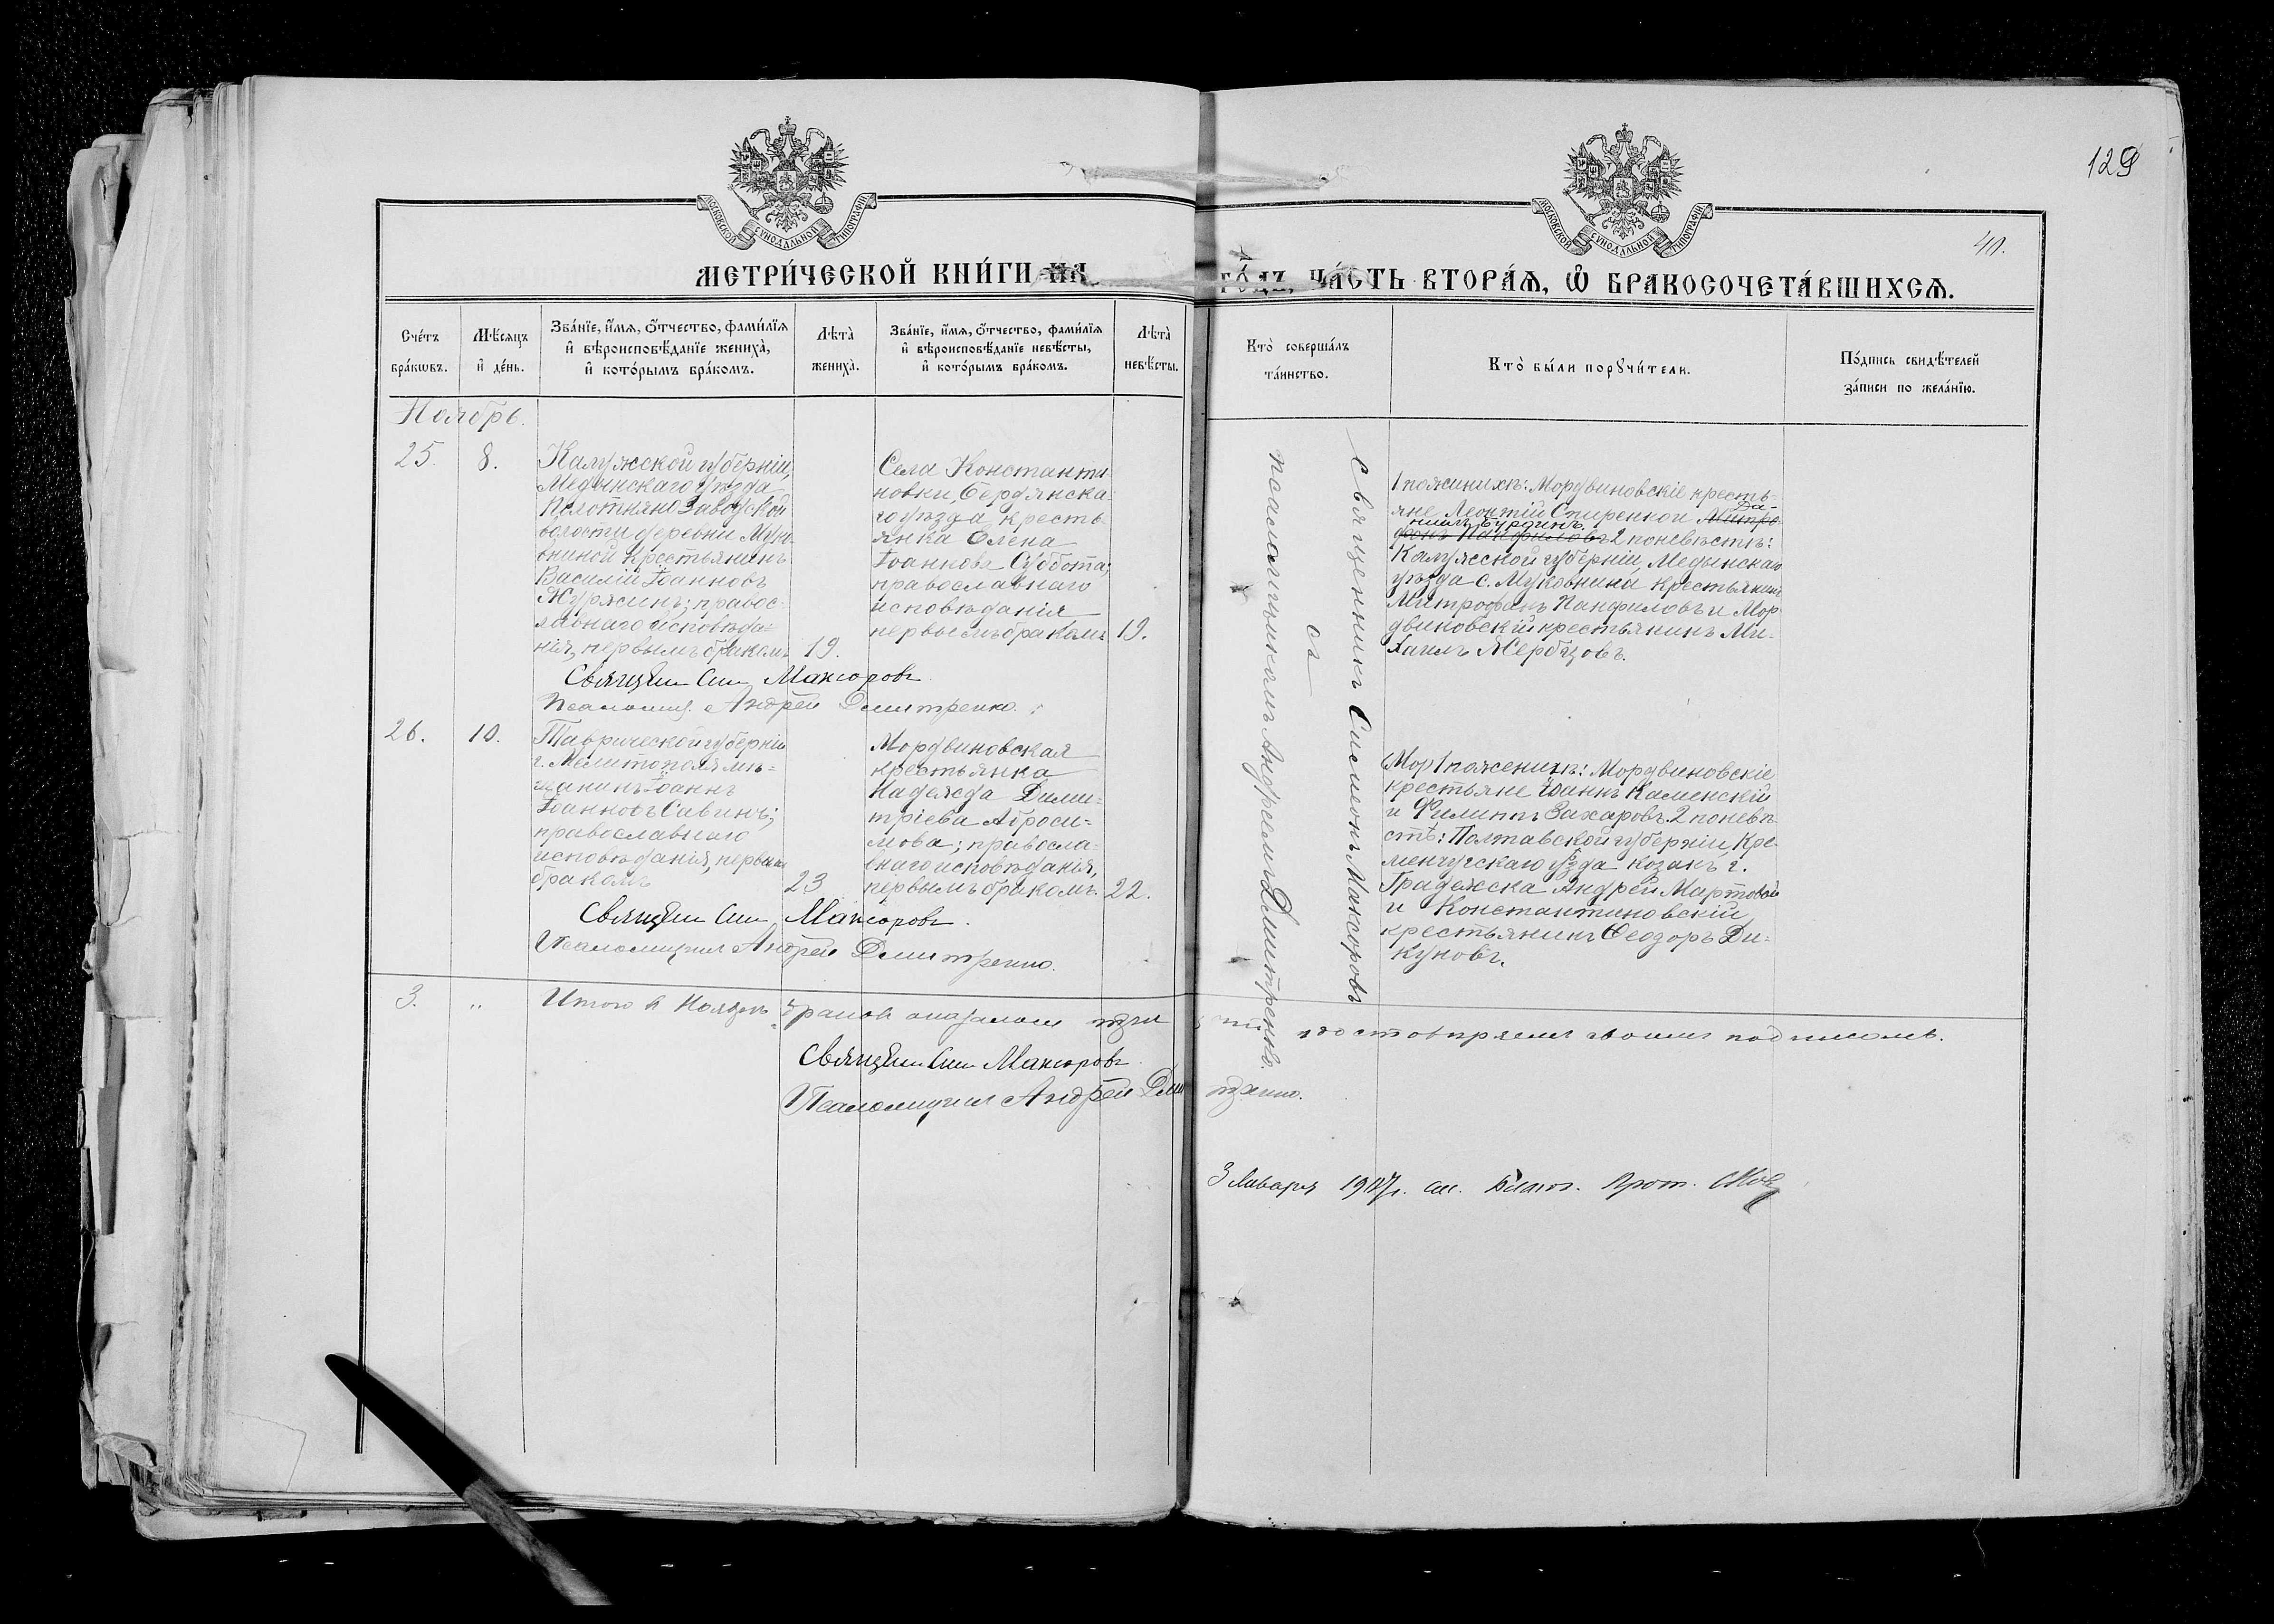 129
40.
МОСКОВСКОЙ СУНОДАЛЬНОЙ ТИПОГРАФІИ
МОСКОВСКОЙ СУНОДАЛЬНОЙ ТИПОГРАФІИ
МЕТРИ́ЧЕСКОЙ КНИ́ГИ НА ГО́ДЪ, ЧА́СТЬ ВТОРА́Ѧ, Ѽ БРАКОСОЧЕТА́ВШИХСѦ.
Сче́тъ
бра́кѡвъ.
Мѣ́сяцъ
и҆ де́нь.
Зва́нїе, и҆́мѧ, ѻ҆́тчество, фами́лїѧ
и҆ вѣроисповѣ́данїе жениха̀,
и҆ кото́рымъ бра́комъ.
Лѣта̀
жениха̀.
Зва́нїе, и҆́мѧ, ѻ҆́тчество, фами́лїѧ
и҆ вѣроисповѣ́данїе невѣ́сты,
и҆ кото́рымъ бра́комъ.
Лѣта̀
невѣ́сты.
Кто̀ соверша́лъ
та́инство.
Кто̀ бы́ли порꙋчи́тели.
По́дпись свидѣ́телей
за́писи по жела́нїю.
Ноябрь.
25.
8.
Калужской губерніи,
Медынскаго уѣзда
Полотняно Заводской
волости деревни Муко-
вниной крестьянинъ
Василій Іоанновъ
Журжинъ; правос-
лавнаго исповѣда-
нія, первымъ бракомъ
19.
Села Константи-
новки, Бердянска-
го уѣзда кресть-
янка Елена
Іоаннова Суббота;
православнаго
исповѣданія
первымъ бракомъ
19.
Священникъ Симеонъ Макоровъ
съ
псаломщикомъ Андреемъ Дмитренко.
1 по женихѣ: Мордвиновскіе кресть-
яне Леонтій Спиренкои Митро- Да-
ніилъ Бурдинъ.
фанъ Панфиловъ 2 по невѣстѣ:
Калужской губерніи, Медынскаго
уѣзда с. Муковнина крестьянинъ
Митрофанъ Панфиловъ и Мор-
двиновскій крестьянинъ Ми-
хаилъ Жербцовъ.
Священ. Сим. Макоровъ.
Псаломщ. Андрей Дмитренко.
26.
10.
Таврической губерніи
г. Мелитополя мѣ-
щанинъ Іоаннъ
Іоанновъ Савинъ;
православнаго
исповѣданія, первымъ
бракомъ
23
Мордвиновская
крестьянка
Надежда Дими-
тріева Аброси-
мова; правосла-
внаго исповѣданія,
первымъ бракомъ.
22.
(Мор 1 по женихѣ: Мордвиновскіе
крестьяне Іоаннъ Каменскій
и Филиппъ Захаровъ. 2 по невѣ-
стѣ: Полтавской губерніи, Кре-
менчугскаго уѣзда козакъ г.
Градежска Андрей Мартовой
и Константиновскій
крестьянинъ Ѳеодоръ Ди-
куновъ.
Священ. Сим. Макоровъ.
Псаломщикъ Андрей Дмитренко.
3.
„
Итого въ Ноябрѣ браковъ оказалось три
удостовѣряемъ своимъ подписомъ.
Священ. Сим. Макоровъ
Псаломщикъ Андрей Дмитренко.
3 Января 1917 г. см. Благоч. Прот.